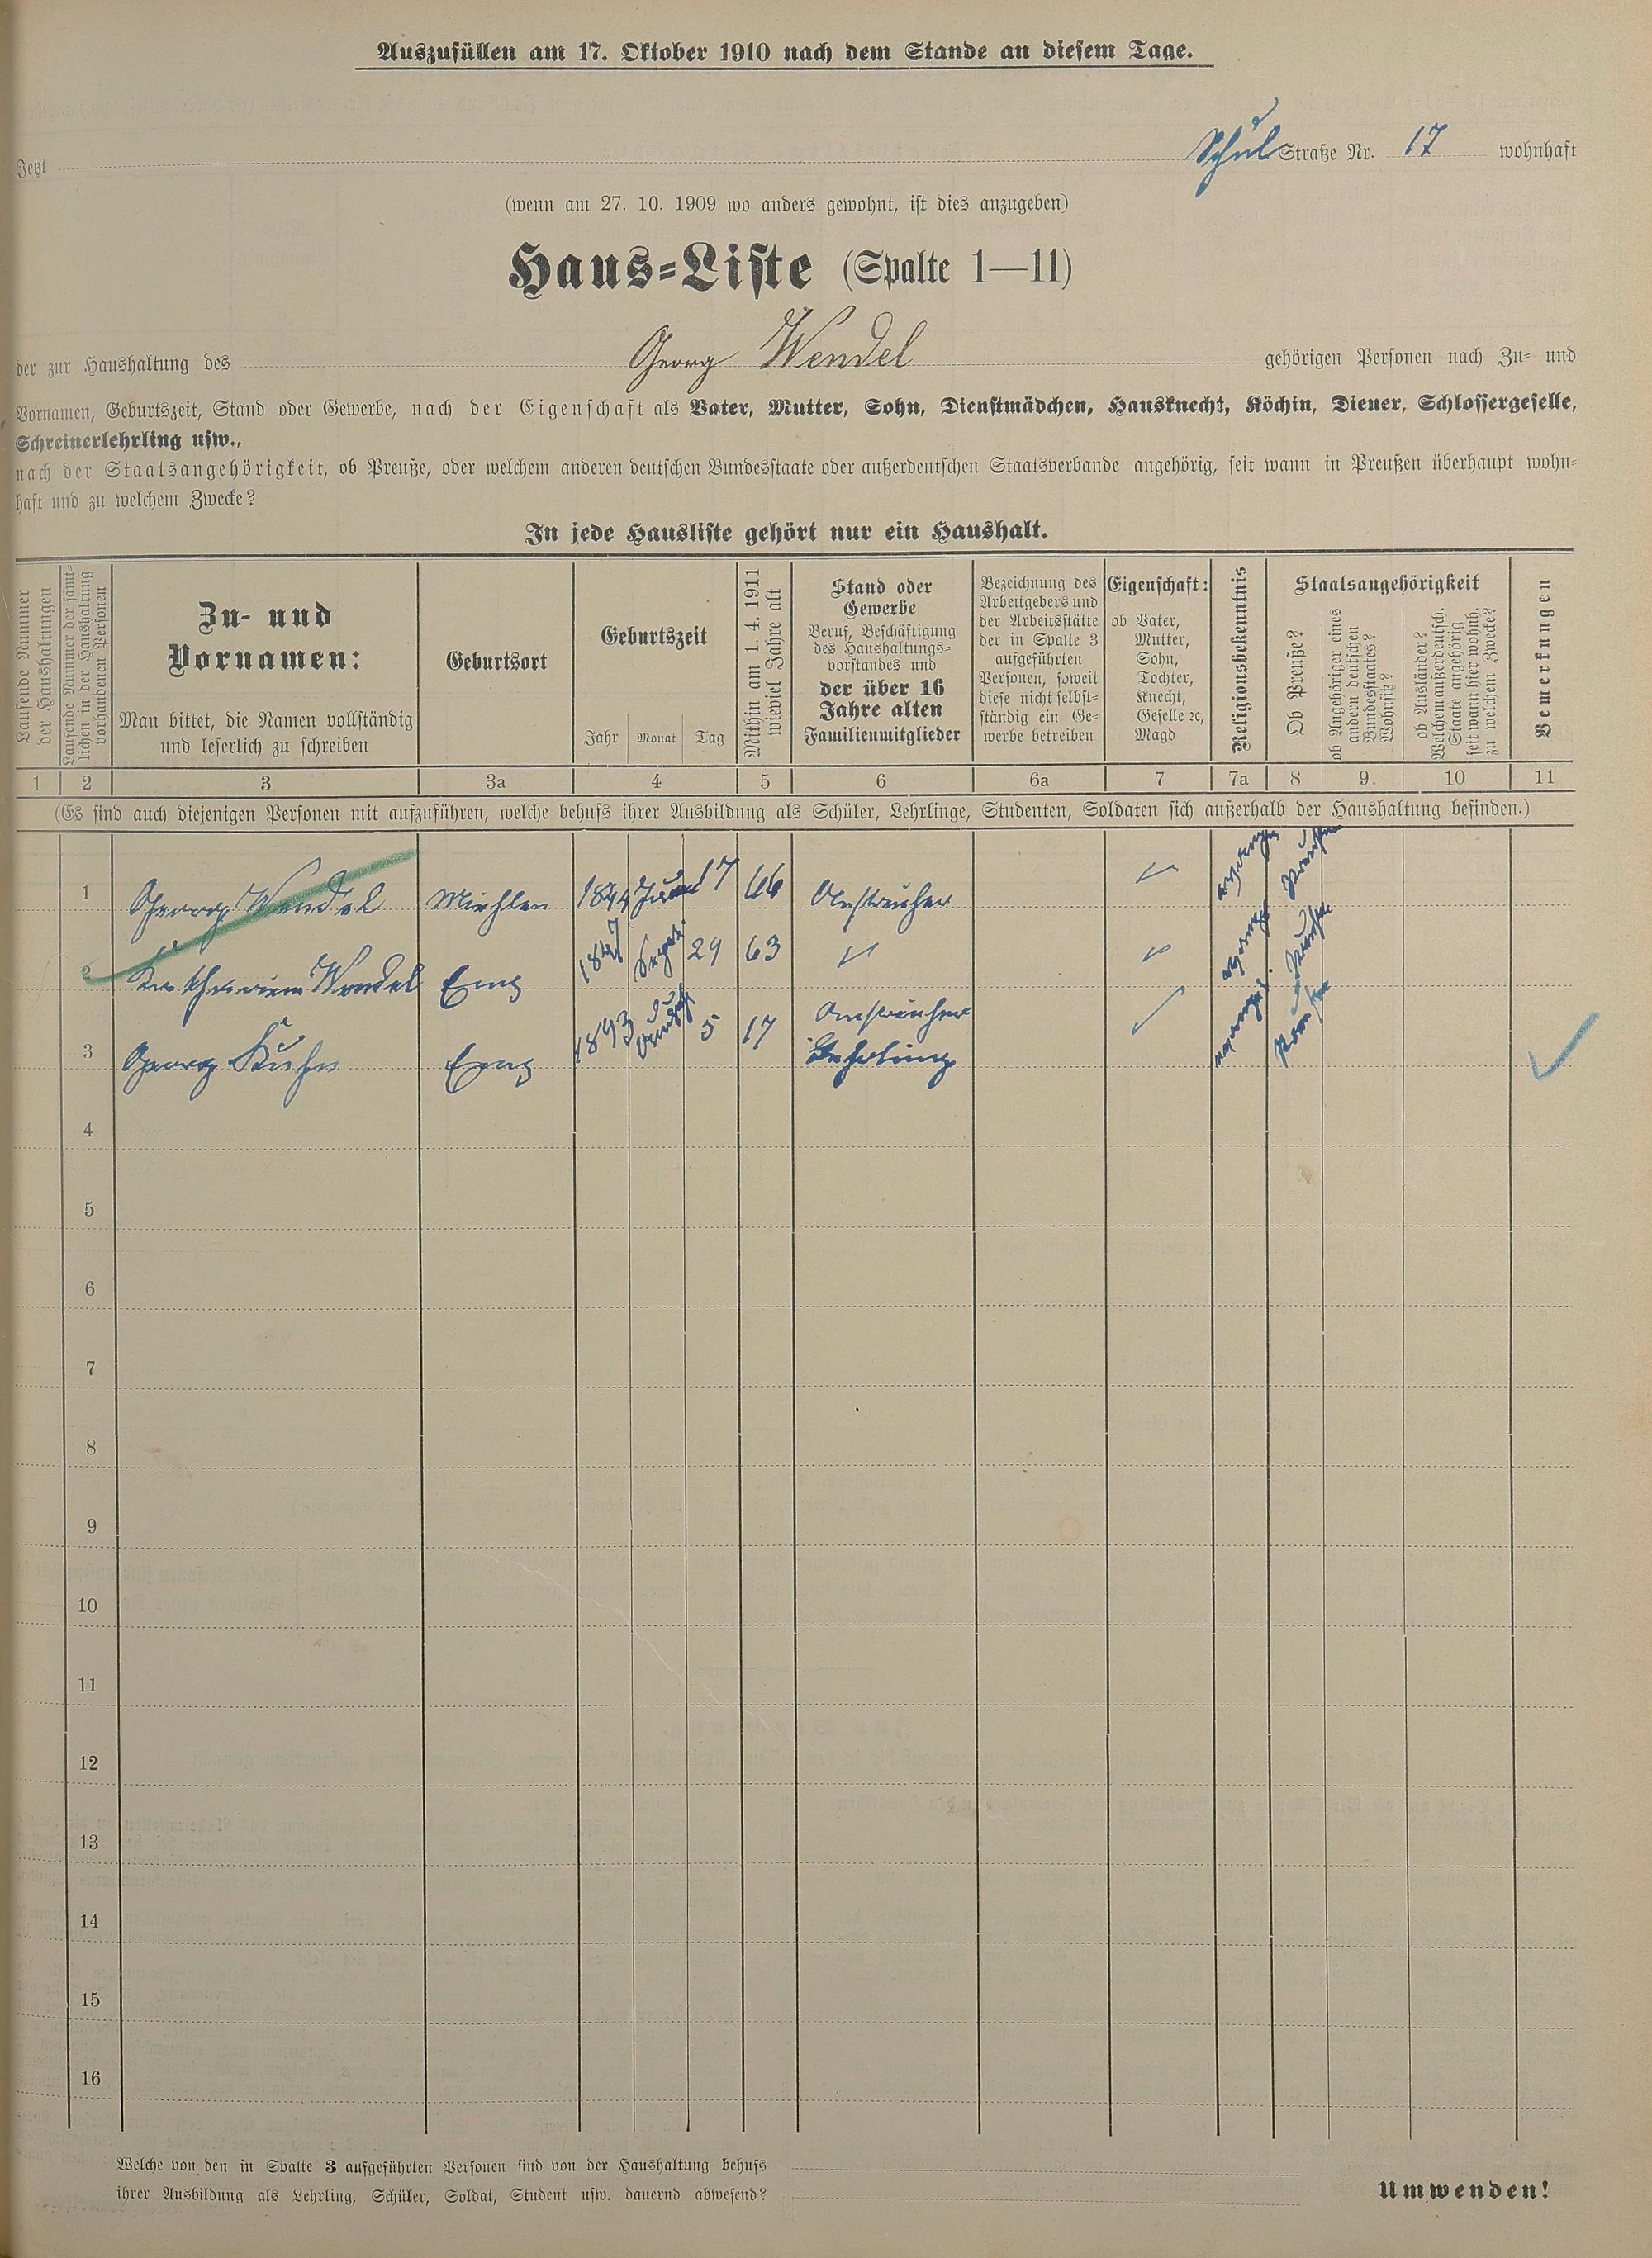 Auszufüllen am 17. Oktober 1910 nach dem Stande an diesem Tage.
Jetzt Schul Straße Nr. 17 wohnhaft
(wenn am 27. 10. 1909 wo anders gewohnt, ist dies anzugeben)
Haus-Liste (Spalte 1—11)
der zur Haushaltung des Georg Wendel gehörigen Personen nach Zu- und
Vornamen, Geburtszeit, Stand oder Gewerbe, nach der Eigenschaft als Vater, Mutter, Sohn, Dienstmädchen, Hausknecht, Köchin, Diener, Schlossergeselle,
Schreinerlehrling usw.,
nach der Staatsangehörigkeit, ob Preuße, oder welchem anderen deutschen Bundesstaate oder außerdeutschen Staatsverbande angehörig, seit wann in Preußen überhaupt wohn-
haft und zu welchem Zwecke?
In jede Hausliste gehört nur ein Haushalt.
Laufende Nummer
der Haushaltungen
Laufende Nummer der sämt-
lichen in der Haushaltung
vorhandenen Personen
Zu- und
Vornamen:
Man bittet, die Namen vollständig
und leserlich zu schreiben
Geburtsort
Geburtszeit
Jahr Monat Tag
Mithin am 1. 4. 1911
wieviel Jahre alt
Stand oder
Gewerbe
Beruf, Beschäftigung
des Haushaltungs-
vorstandes und
der über 16
Jahre alten
Familienmitglieder
Bezeichnung des
Arbeitgebers und
der Arbeitsstätte
der in Spalte 3
aufgeführten
Personen, soweit
diese nicht selbst-
ständig ein Ge-
werbe betreiben
Eigenschaft:
ob Vater,
Mutter,
Sohn,
Tochter,
Knecht,
Geselle ꝛc,
Magd
Religionsbekenntnis
Staatsangehörigkeit
Ob Preuße?
ob Angehöriger eines
andern deutschen
Bundesstaates?
Wohnsitz?
ob Ausländer?
Welchem außerdeutsch.
Staate angehörig
seit wann hier wohnh.
zu welchem Zwecke?
Bemerkungen
1 2 3 3a 4 5 6 6a 7 7a 8 9. 10 11
(Es sind auch diejenigen Personen mit aufzuführen, welche behufs ihrer Ausbildung als Schüler, Lehrlinge, Studenten, Soldaten sich außerhalb der Haushaltung befinden.)
1 Georg Wendel Miehlen 1844 17 66 Anstreicher
2 Wendel Ems 1847 29 63
3 Georg Kuhn Ems 1893 5 17 Anstreicher
Lehrling
4
5
6
7
8
9
10
11
12
13
14
15
16
Welche von den in Spalte 3 aufgeführten Personen sind von der Haushaltung behufs
ihrer Ausbildung als Lehrling, Schüler, Soldat, Student usw. dauernd abwesend?
Umwenden!